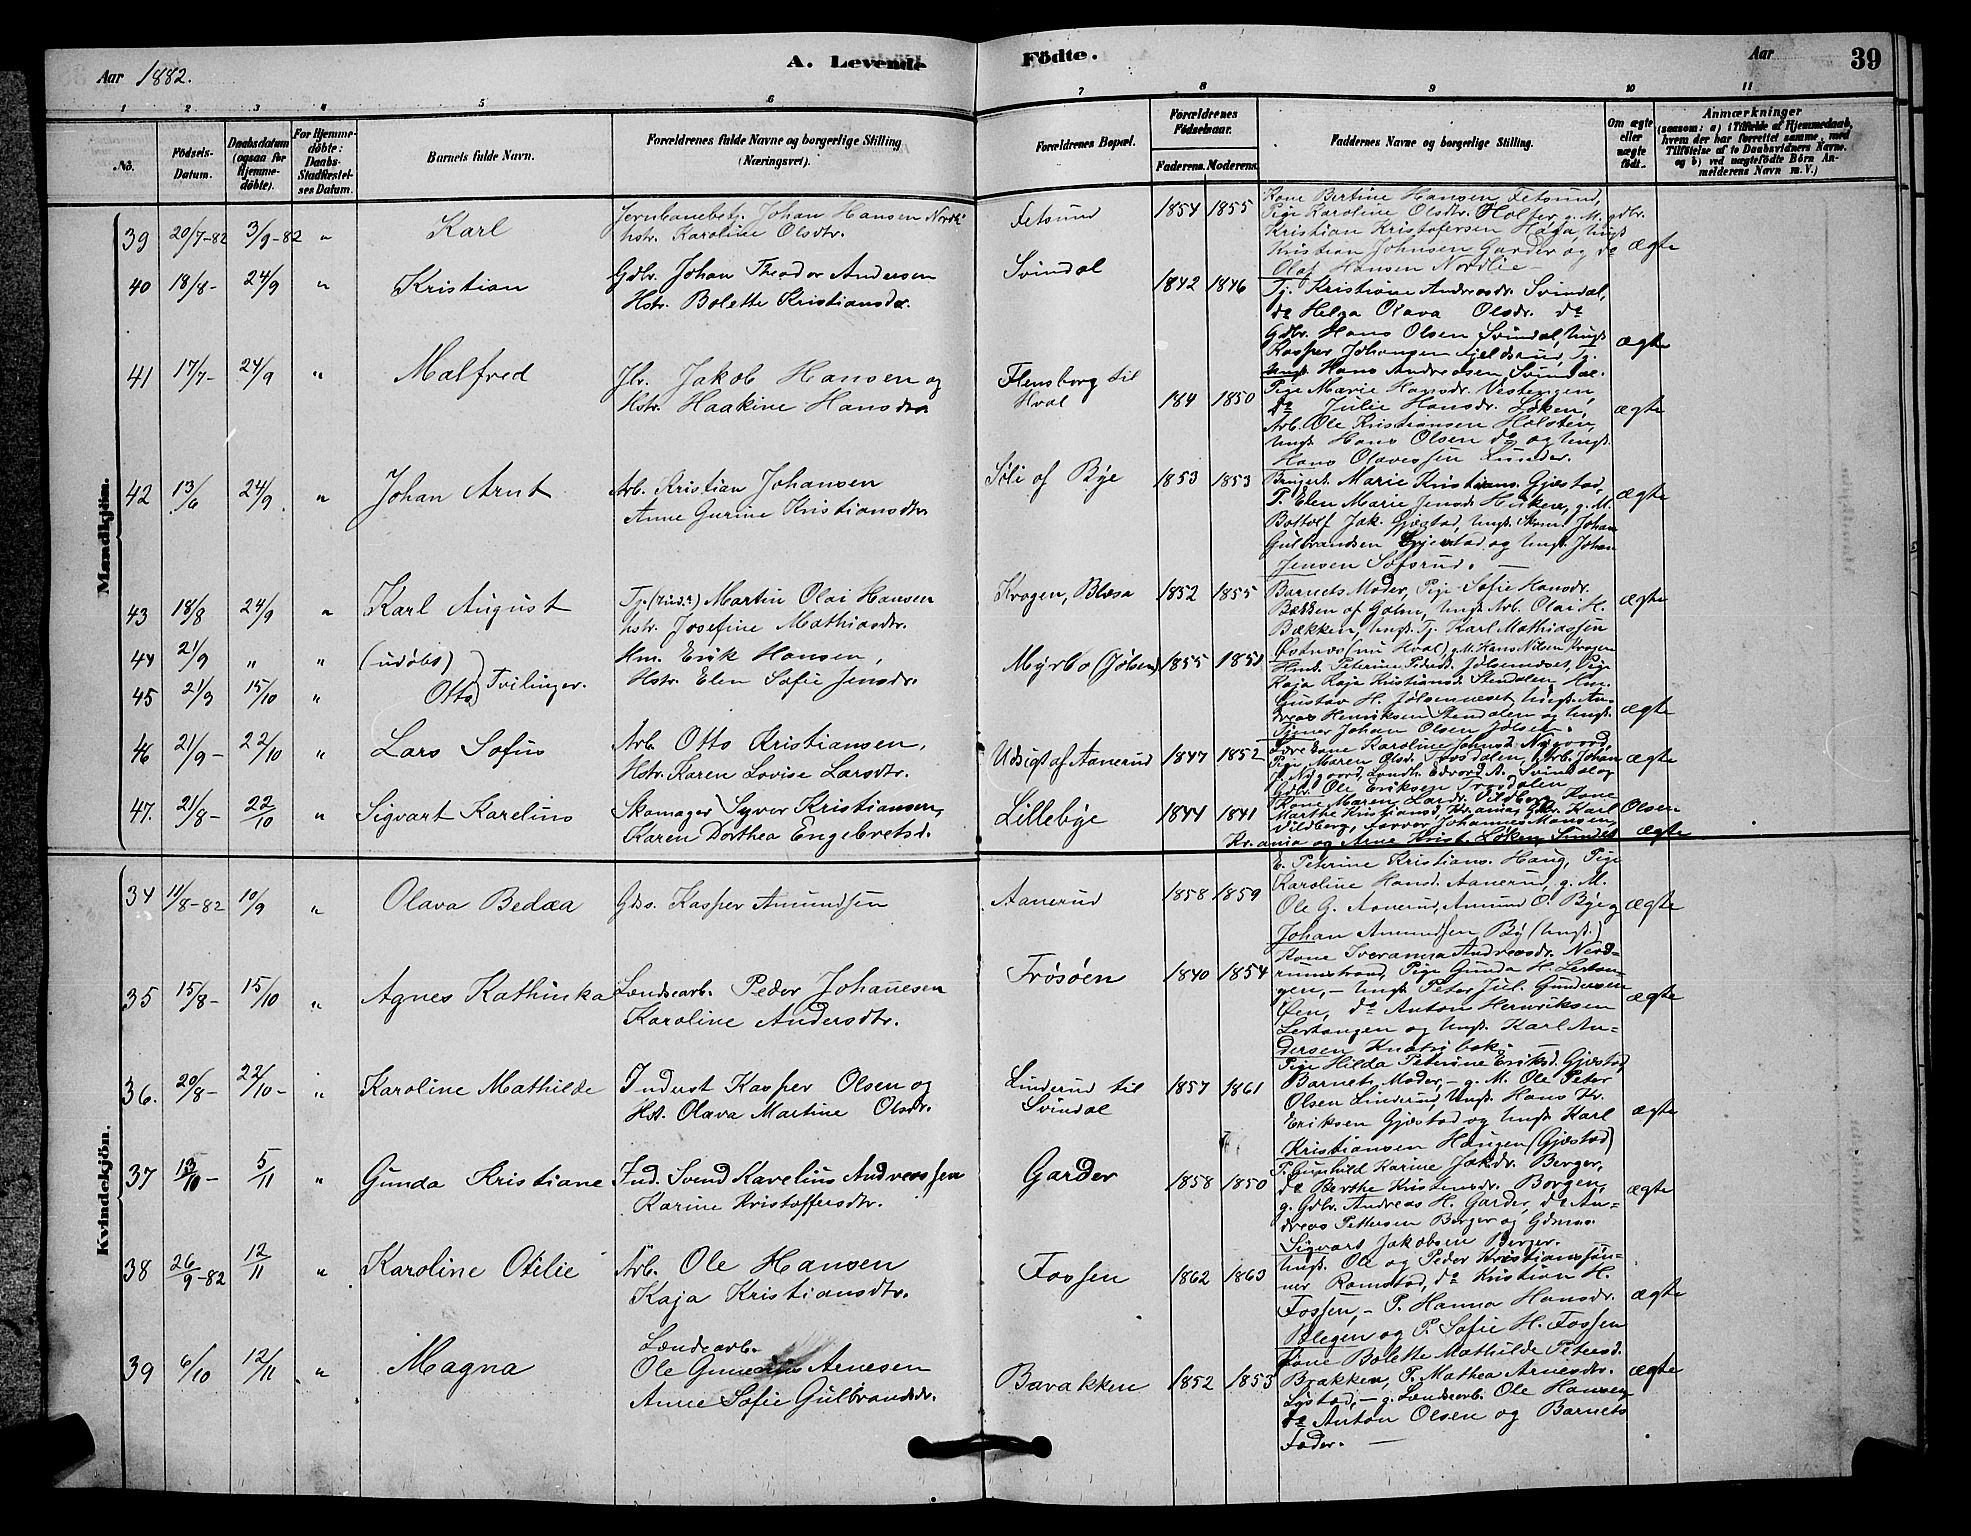 Aar 1882.
A. Levende Födte.
Aar
39
1 2 3 4 5 6 7 8 9 10 11
No.
Födsels-Datum.
Daabsdatum (ogsaa for Hjemme-döbte).
For Hjemme-döbte: Daabs-Stadfæstel-ses Datum.
Barnets fulde Navn.
Forældrenes fulde Navne og borgerlige Stilling (Næringsvei).
Forældrenes Bopæl.
Forældrenes Födselsaar.
Faderens. Moderens.
Faddernes Navne og borgerlige Stilling.
Om ægte eller uægte födt.
Anmærkninger
(saasom: a) i Tilfælde af Hjemmedaab, hvem der har forrettet samme, med Tilföielse af to Daabsvidners Navne. og b) ved uægtefödte Börn An-melderens Navn m. V.)
Mandkjön.
39 20/7-82 3/9-82 " Karl
Jernbanebetj. Johan Hansen Nordli
hstr. Karoline Olsdtr.
Fetsund 1854 1855
Kone Bertine Hansen Fetsund,
Pige Karoline Olsdtr. Holter, g. M. gdbr.
Kristian Kristofersen Haga, Ungk
Kristian Johnsen Garder og do
Olaf Hansen Nordlie -
ægte
40 18/8- 24/9 " Kristian
Gdbr. Johan Theodor Andersen
Hstr. Bolette Kristiansdr.
Svindal 1842 1846
Tj. Kristiane Andreasdr. Svindal,
do Helga Olava Olsdr. do
Gdbr. Hans Olsen Svindal, Ungk
Kasper Johansen Fjeldsrud, Tj.
Ungk. Hans Andreasen Svindal.
ægte
41 17/7- 24/9 " Malfred
Jbr. Jakob Hansen og
Hstr. Haakine Hansdtr
Flensborg til Hval 184 1850
Pige Marie Hansdr. Vestengen,
do Julie Hansdr. Løken,
Arb. Ole Kristiansen Holsten,
Ungk. Hans Olsen do og Ungk.
Hans Olavessen Lunder.
ægte
42 13/6 24/9 " Johan Arnt
Arb. Kristian Johansen
Anne Gurine Kristiansdtr.
Søli af Bye 1853 1853
Brugert. Marie Kristians. Gjæstad,
P. Elen Marie Jensd. Huken, g. M.
Bottolf Jak. Gjæstad, Ungk. Skom. Johan
Gulbrandsen Gjæstad og Ungk. Johan
Jensen Sofsrud. -
ægte
43 18/8 24/9 " Karl August
Tj. Martin Olai Hansen
hstr. Josefine Mathiasdtr.
Krogen, Blæsa 1852 1855
Barnets Moder, Pige Sofie Hansdr.
Bækken af Galm, Ungk. Arb. Olai H.
Bækken, Ungk. Tj. Karl Mathiassen
Østnæs (nu Hval), g. M. Hans Nilsen Krogen
ægte
44 21/9 " " (udøbt)
45 21/9 15/10 " Otto
Tvilinger.
Hm. Erik Hansen,
Hstr. Elen Sofie Jensdr.
Myrbo (Jølsen) 1855 1851
Hmk. Peterine Pedersd. Jølsennæset, Pige
Kaja Kristiansd. Stendalen, Hm.
Gustav H. Jølsennæset, Ungk. An-
dreas Henriksen Stendalen og Ungk.
Tjener Johan Olsen Jølsen.
ægte
46 21/9- 22/10 " Lars Sofus
Arb. Otto Kristiansen,
Hstr. Karen Lovise Larsdtr.
Udsigt af Aanerud 1847 1852
Karoline Johnsd. Nygaard,
Pige Maren Olsd. Trosdalen, Arb. Johan
J. Nygaard, Landh. Edvard A. Svindal og
Gdbr. Ole Eriksen Trosdalen
ægte
47. 21/8- 22/10 " Sigvart Karelius
Skomager Syver Kristiansen,
Karen Dorthea Engebretsd.
Lillebye 1844 1841
Kone Maren Larsdr. Vildberg, Kone
Marthe Kristiansd. Kr.ania, Gdbr. Karl Olsen
Vildberg, Farver Johannes Monsen,
Kr.ania og Arne Krist. Løken, Sundet
ægte
Kvindekjön.
34 11/8-82 10/9 " Olava Bedæa
Gds. Kasper Amundsen
Aanerud 1858 1859
E. Peterine Kristians. Haug, Pige
Karoline Hansd. Aanerud, g. M.
Ole G. Aanerud, Amund O. Bye og
Johan Amundsen By (Ungk.)
ægte
35 15/8- 15/10 " Agnes Kathinka
Landearb. Peder Johanesen
Karoline Andersdtr.
Trøsøen 1840 1854
Kone Iveranna Andreasdr. Nerd-
rumstrand, Pige Gunda H. Lertan-
gen, - Ungk. Peter Jul. Gundersen
Øen, do Anton Henriksen
Lertangen og Ungk. Karl An-
dersen
ægte
36. 20/8- 22/10- " Karoline Mathilde
Indust Kasper Olsen og
Hst. Olava Martine Olsdr.
Linderud til Svindal 1857 1861
Pige Hilda Peterine Eriksd. Gjæstad,
Barnets Moder, - g. M. Ole Peter
Olsen Linderud, Ungk. Hans Kr.
Eriksen Gjæstad og Ungk. Karl
Kristiansen Haugen (Gjæstad)
ægte
37 13/10- 5/11 " Gunda Kristiane
Ind. Svend Karelius Andreassen
Karine Kristoffersdtr.
Garder 1858 1850
P. Gunhild Karine Jakdr. Berger,
do Berthe Kristensdr. Borgen,
g. Gdbr. Andreas H. Garder, do An-
dreas Pettersen Berger og Gdmns.
Sigvart Jakobsen Berger.
ægte
38 26/9-82 12/11 " Karoline Otilie
Arb. Ole Hansen
Kaja Kristiansdtr.
Fossen 1862 1863
Ungk. Ole og Peder Kristianssøn-
ner Ramstad, do Kristian H.
Fossen, - P. Hanna Hansdr.
Hegen og P. Sofie H. Fossen
ægte
39 6/10 12/11 " Magna
Landearb.
Ole Arnesen
Anne Sofie Gulbrandsdr.
Barakken 1852 1853
Kone Bolette Mathilde Petersd.
Brakken, P. Mathea Arnesdtr.
Lystad, - g. Landearb. Ole Hansen,
do Anton Olsen og Barnets
Fader. -
ægte